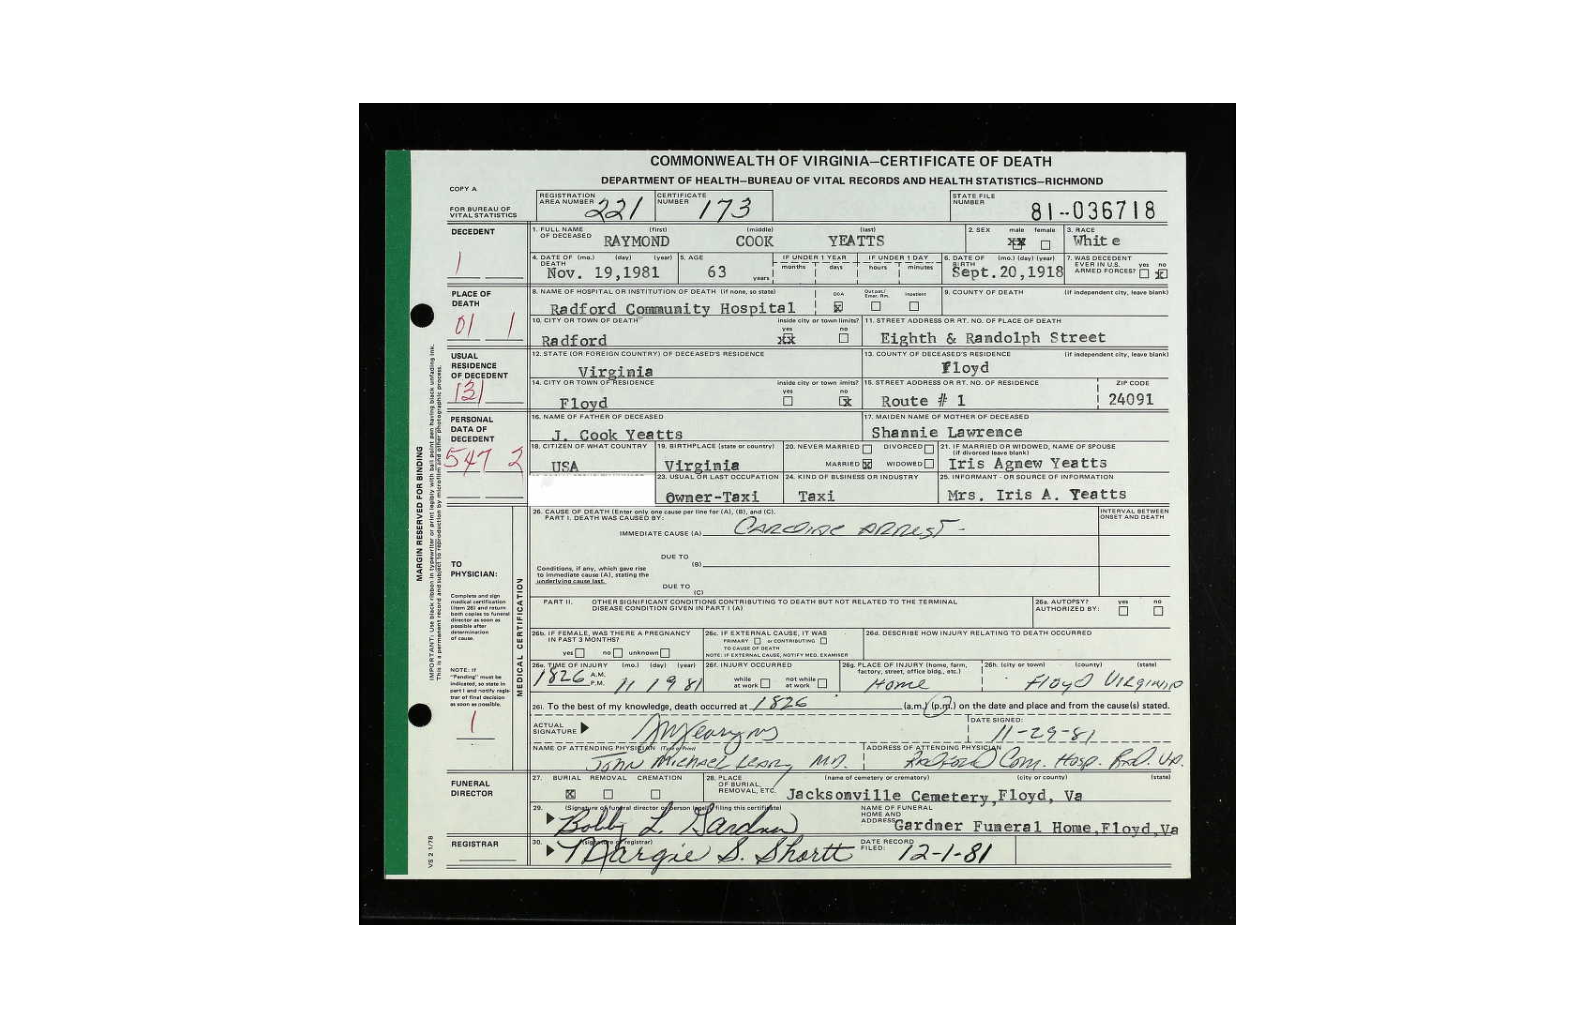 COMMONWEALTH OF VIRGINIA—CERTIFICATE OF DEATH
DEPARTMENT OF HEALTH—BUREAU OF VITAL RECORDS AND HEALTH STATISTICS—RICHMOND
COPY A
FOR BUREAU OF VITAL STATISTICS
REGISTRATION AREA NUMBER 221
CERTIFICATE NUMBER 173
STATE FILE NUMBER 81-036718
DECEDENT
1
1. FULL NAME OF DECEASED (first) (middle) (last)
RAYMOND COOK YEATTS
2. SEX male female
XX
3. RACE
White
4. DATE OF DEATH (mo.) (day) (year)
Nov. 19,1981
5. AGE
63 years
IF UNDER 1 YEAR months days
IF UNDER 1 DAY hours minutes
6. DATE OF BIRTH (mo.) (day) (year)
Sept.20,1918
7. WAS DECEDENT EVER IN U.S. ARMED FORCES? yes no
x
PLACE OF DEATH
01 1
8. NAME OF HOSPITAL OR INSTITUTION OF DEATH (if none, so state)
Radford Community Hospital
DOA Out pat./ Emer. Rm. Inpatient
x
9. COUNTY OF DEATH (if independent city, leave blank)
10. CITY OR TOWN OF DEATH
Radford
inside city or town limits? yes no
XX
11. STREET ADDRESS OR RT. NO. OF PLACE OF DEATH
Eighth & Randolph Street
USUAL RESIDENCE OF DECEDENT
131
12. STATE (OR FOREIGN COUNTRY) OF DECEASED'S RESIDENCE
Virginia
13. COUNTY OF DECEASED'S RESIDENCE (if independent city, leave blank)
Floyd
14. CITY OR TOWN OF RESIDENCE
Floyd
inside city or town limits? yes no
x
15. STREET ADDRESS OR RT. NO. OF RESIDENCE
Route # 1
ZIP CODE
24091
PERSONAL DATA OF DECEDENT
547 2
16. NAME OF FATHER OF DECEASED
J. Cook Yeatts
17. MAIDEN NAME OF MOTHER OF DECEASED
Shannie Lawrence
18. CITIZEN OF WHAT COUNTRY
USA
19. BIRTHPLACE (state or country)
Virginia
20. NEVER MARRIED DIVORCED
MARRIED x WIDOWED
21. IF MARRIED OR WIDOWED, NAME OF SPOUSE (if divorced leave blank)
Iris Agnew Yeatts
23. USUAL OR LAST OCCUPATION
Owner-Taxi
24. KIND OF BUSINESS OR INDUSTRY
Taxi
25. INFORMANT - OR SOURCE OF INFORMATION
Mrs. Iris A. Yeatts
MARGIN RESERVED FOR BINDING
IMPORTANT: Use black ribbon in typewriter or print legibly with ball point pen having black unfading ink.
This is a permanent record and subject to reproduction by microfilm and other photographic process.
MEDICAL CERTIFICATION
TO PHYSICIAN:
Complete and sign medical certification (item 26) and return both copies to funeral director as soon as possible after determination of cause.
NOTE: If "Pending" must be indicated, so state in part I and notify registrar of final decision as soon as possible.
1
26. CAUSE OF DEATH (Enter only one cause per line for (A), (B), and (C).
PART I. DEATH WAS CAUSED BY:
IMMEDIATE CAUSE (A) CARDIAC ARREST
INTERVAL BETWEEN ONSET AND DEATH
DUE TO (B)
Conditions, if any, which gave rise to immediate cause (A), stating the underlying cause last.
DUE TO (C)
PART II. OTHER SIGNIFICANT CONDITIONS CONTRIBUTING TO DEATH BUT NOT RELATED TO THE TERMINAL DISEASE CONDITION GIVEN IN PART I (A)
26a. AUTOPSY? yes no
AUTHORIZED BY:
26b. IF FEMALE, WAS THERE A PREGNANCY IN PAST 3 MONTHS?
yes no unknown
26c. IF EXTERNAL CAUSE, IT WAS
PRIMARY or CONTRIBUTING
TO CAUSE OF DEATH
NOTE: IF EXTERNAL CAUSE, NOTIFY MED. EXAMINER
26d. DESCRIBE HOW INJURY RELATING TO DEATH OCCURRED
26e. TIME OF INJURY (mo.) (day) (year)
1826 A.M. P.M. 11 19 81
26f. INJURY OCCURRED
while at work not while at work
26g. PLACE OF INJURY (home, farm, factory, street, office bldg., etc.)
Home
26h. (city or town) (county) (state)
Floyd Virginia
26i. To the best of my knowledge, death occurred at 1826 (a.m.) (p.m.) on the date and place and from the cause(s) stated.
ACTUAL SIGNATURE
DATE SIGNED:
11-29-81
NAME OF ATTENDING PHYSICIAN (Type or Print)
John Michael Leary M.D.
ADDRESS OF ATTENDING PHYSICIAN
Radford Com. Hosp. Rad. Va.
FUNERAL DIRECTOR
27. BURIAL REMOVAL CREMATION
x
28. PLACE OF BURIAL, REMOVAL, ETC. (name of cemetery or crematory) (city or county) (state)
Jacksonville Cemetery,Floyd, Va
29. (Signature of funeral director or person legally filing this certificate)
Bobby L. Gardner
NAME OF FUNERAL HOME AND ADDRESS
Gardner Funeral Home,Floyd,Va
REGISTRAR
30. (signature of registrar)
Margie S. Shortt
DATE RECORD FILED:
12-1-81
VS 2 1/78